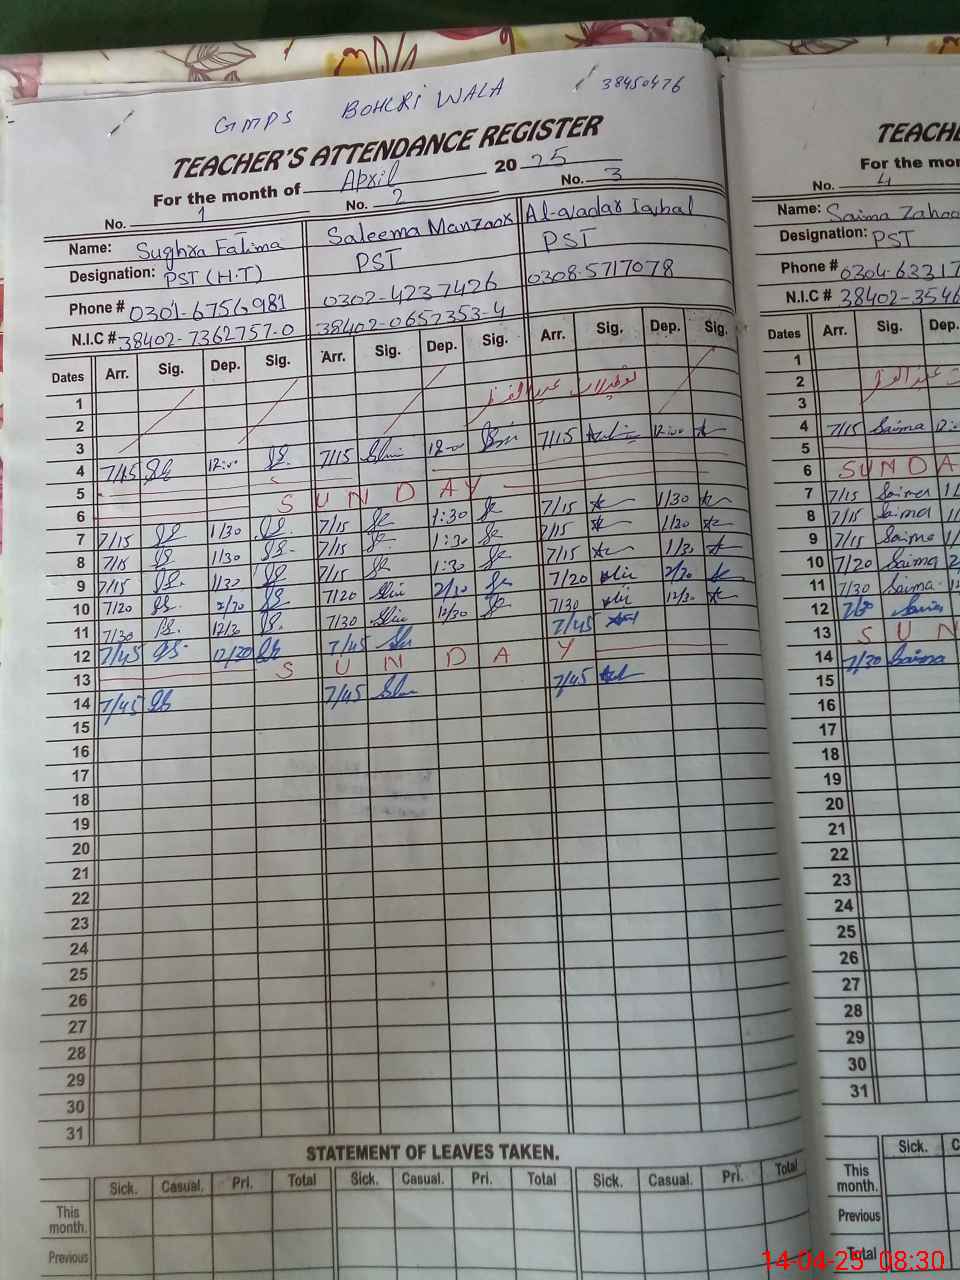 GMPS BOHLRI WALA 38450476
TEACHER'S ATTENDANCE REGISTER
For the month of April 2025
No. 1 No. 2 No. 3
Name: Sughra Fatima Saleema Manzoor Iqbal
Designation: PST (H.T) PST PST
Phone # 0301-6756981 0302-4237426 0308-5717078
N.I.C # 38402-7362757-0 38402-0657353-4
Dates Arr. Sig. Dep. Sig. Arr. Sig. Dep. Sig. Arr. Sig. Dep. Sig.
1
2
3
4 7/15 12:00 7/15 12:00 7/15 12:00
5
6 SUNDAY
7 7/15 1/30 7/15 1:30 7/15 1/30
8 7/15 1/30 7/15 1:30 7/15 1/20
9 7/15 1/30 7/15 1:30 7/15 1/30
10 7/20 2/30 7/20 2/30 7/20 2/30
11 7/30 12/30 7/30 12/30 7/30 12/30
12 7/45 12/30 7/45 7/45
13 SUNDAY
14 7/45 7/45 7/45
15
16
17
18
19
20
21
22
23
24
25
26
27
28
29
30
31
STATEMENT OF LEAVES TAKEN.
Sick. Casual. Pri. Total Sick. Casual. Pri. Total Sick. Casual. Pri. Total
This month.
Previous
TEACHE
For the mon
No. 4
Name: Saima Zahoo
Designation: PST
Phone # 0304-63317
N.I.C # 38402-3546
Dates Arr. Sig. Dep.
1
2
3
4 7/15 Saima 12:
5
6 SUNDA
7 7/15 Saima 1/
8 7/15 Saima 1/
9 7/15 Saima 1/
10 7/20 Saima 2
11 7/30 Saima 12
12 Saima
13 SUN
14 7/30 Saima
15
16
17
18
19
20
21
22
23
24
25
26
27
28
29
30
31
Sick. C
This month.
Previous
Total
14-04-25 08:30